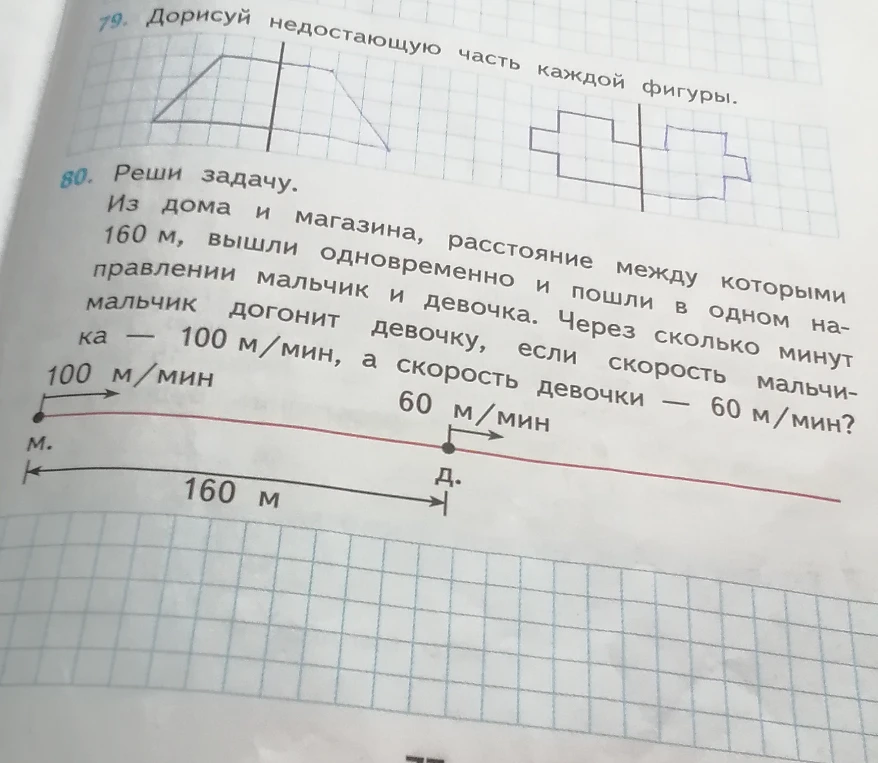 79. Дорисуй недостающую часть каждой фигуры.
80. Реши задачу.
Из дома и магазина, расстояние между которыми
160 м, вышли одновременно и пошли в одном на-
правлении мальчик и девочка. Через сколько минут
мальчик догонит девочку, если скорость мальчи-
ка — 100 м/мин, а скорость девочки — 60 м/мин?
100 м/мин
60 м/мин
м.
Д.
160 м